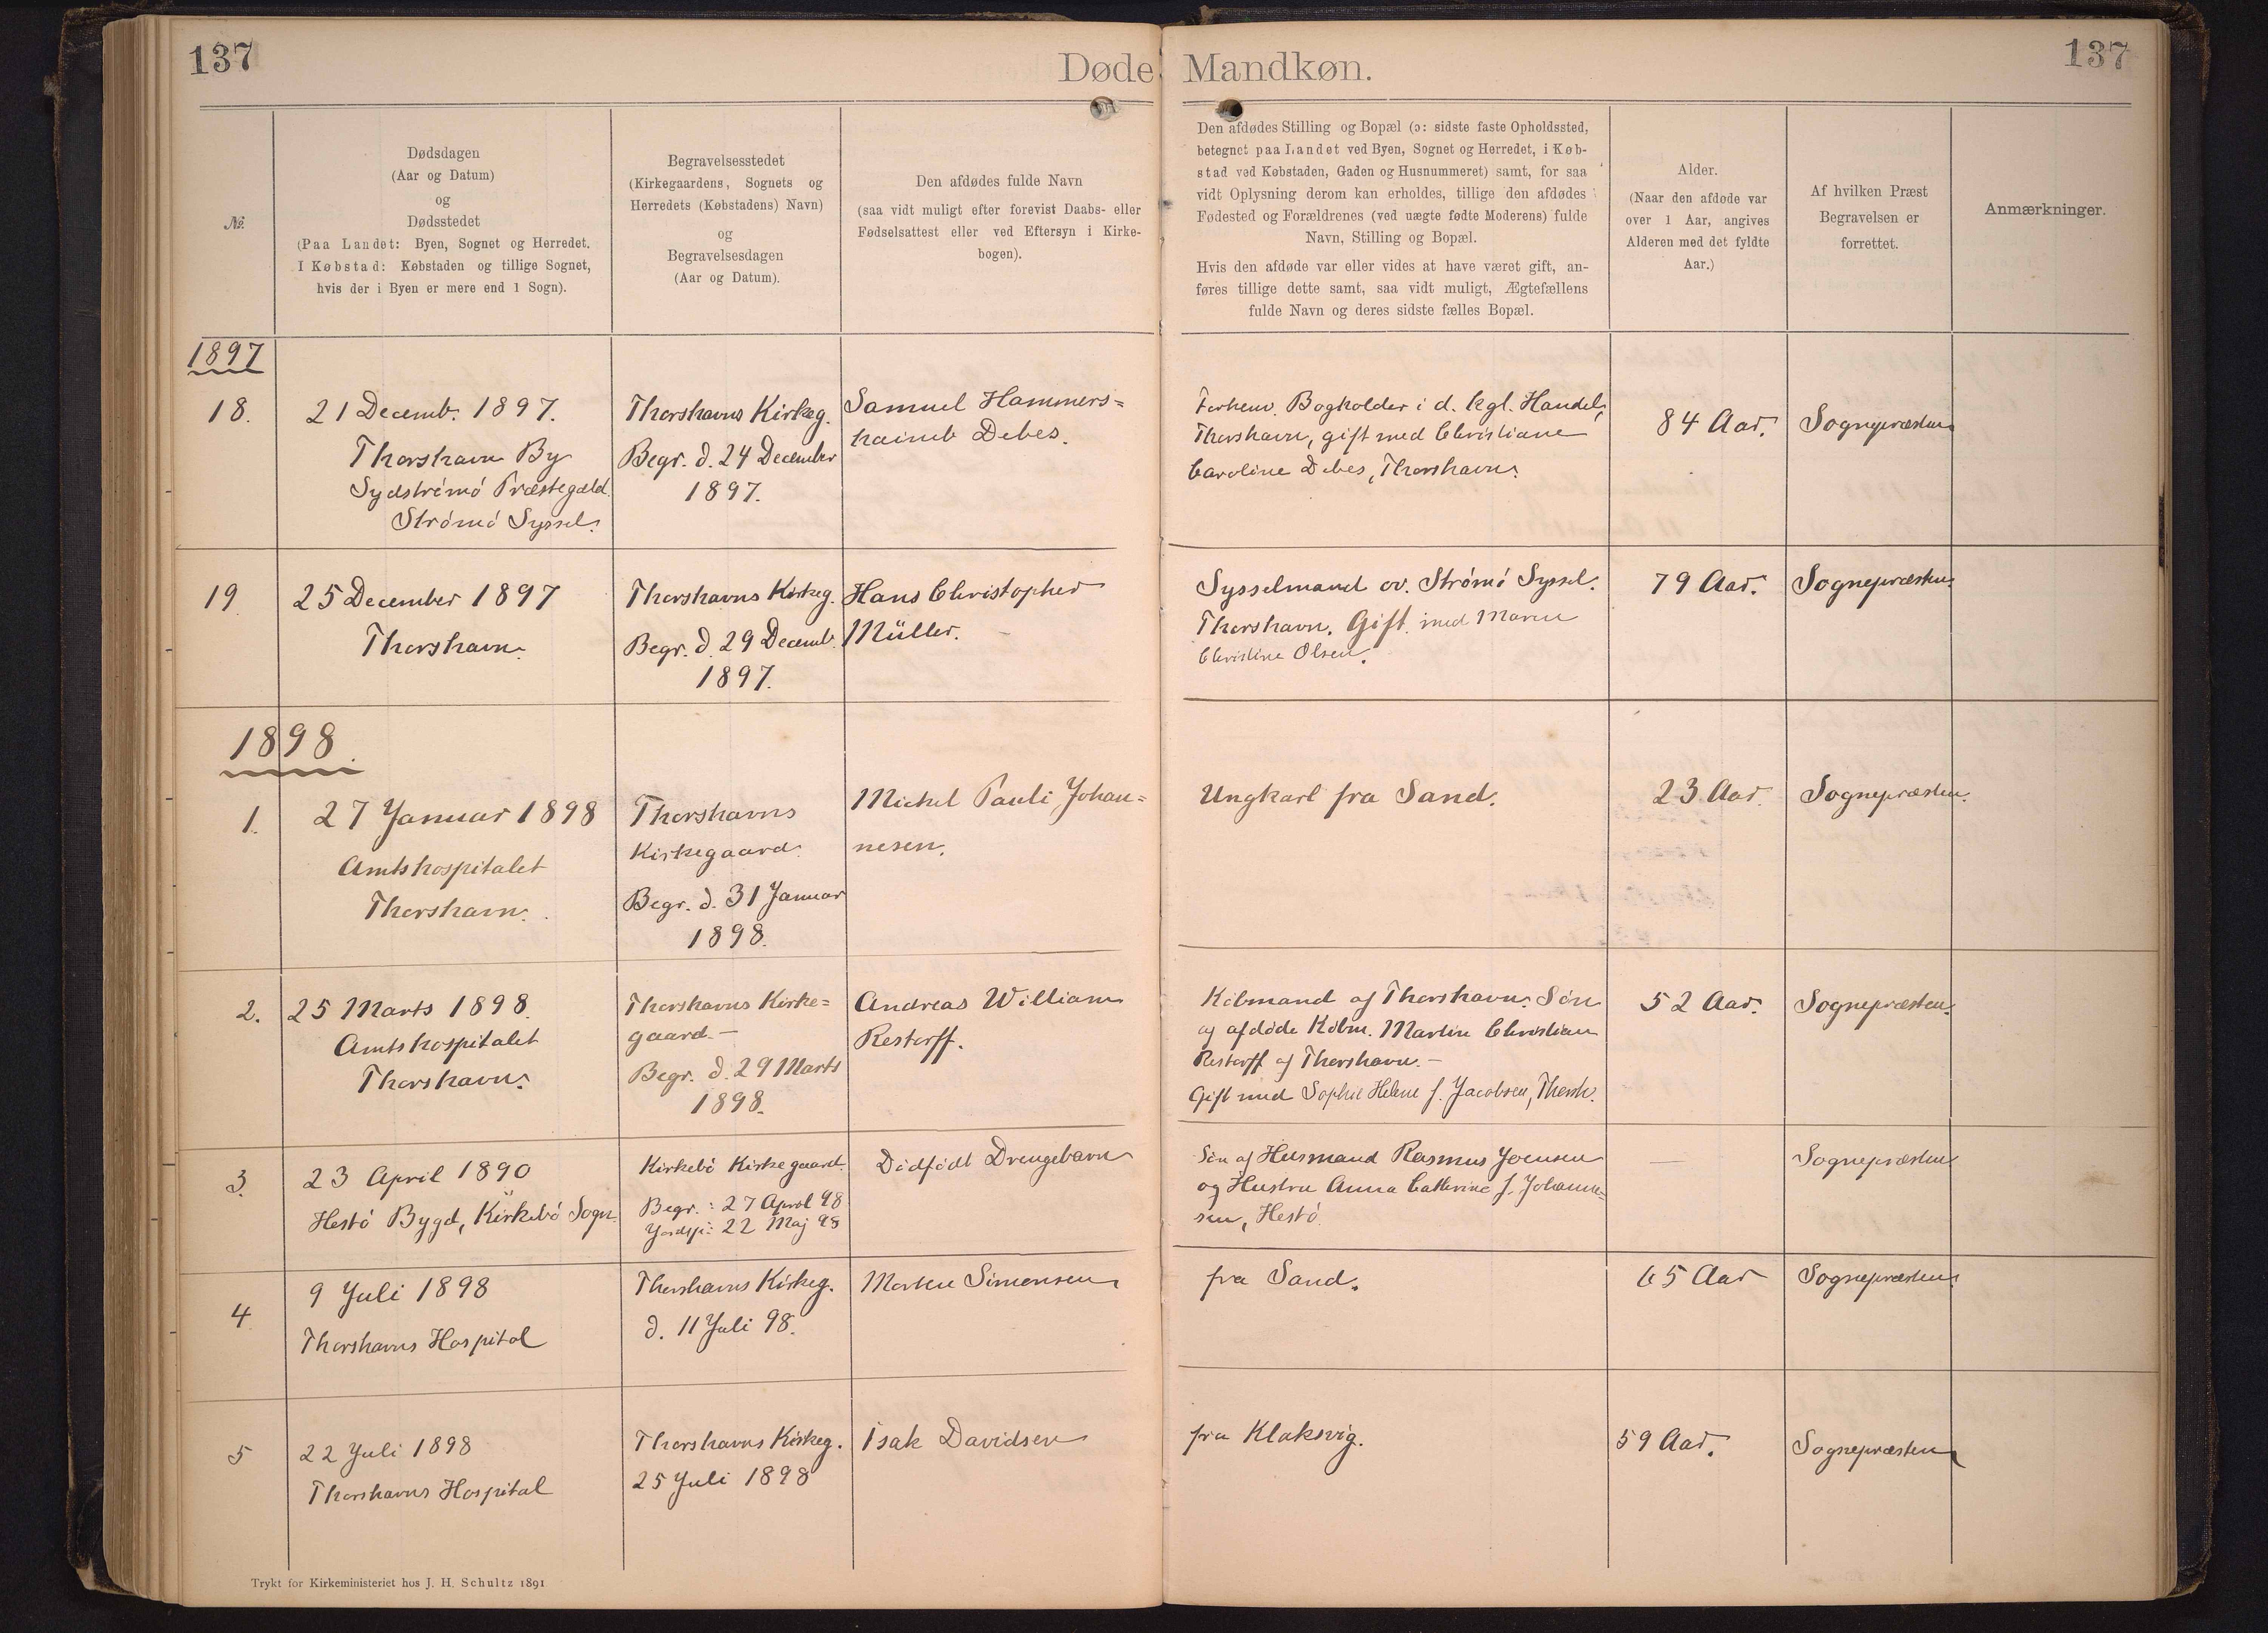 137
Døde Mandkøn.
137
№
Dødsdagen
(Aar og Datum)
og
Dødsstedet
(Paa Landet: Byen, Sognet og Herredet.
I Købstad: Købstaden og tillige Sognet,
hvis der i Byen er mere end 1 Sogn).
Begravelsesstedet
(Kirkegaardens, Sognets og
Herredets (Købstadens) Navn)
og
Begravelsesdagen
(Aar og Datum).
Den afdødes fulde Navn
(saa vidt muligt efter forevist Daabs- eller
Fødselsattest eller ved Eftersyn i Kirke-
bogen).
Den afdødes Stilling og Bopæl (ɔ: sidste faste Opholdssted,
betegnet paa Landet ved Byen, Sognet og Herredet, i Køb-
stad ved Købstaden, Gaden og Husnummeret) samt, for saa
vidt Oplysning derom kan erholdes, tillige den afdødes
Fødested og Forældrenes (ved uægte fødte Moderens) fulde
Navn, Stilling og Bopæl.
Hvis den afdøde var eller vides at have været gift, an-
føres tillige dette samt, saa vidt muligt, Ægtefællens
fulde Navn og deres sidste fælles Bopæl.
Alder.
(Naar den afdøde var
over 1 Aar, angives
Alderen med det fyldte
Aar.)
Af hvilken Præst
Begravelsen er
forrettet.
Anmærkninger.
1897
18.
21 Decemb. 1897.
Thorshavn By
Sydströmö Præstegæld.
Strömö Syssel.
Thorshavns Kirkeg.
Begr. d. 24 December
1897.
Samuel Hammers=
haimb Debes.
Forhenv. Bogholder i d. kgl. Handel,
Thorshavn, gift med Christiane
Caroline Debes, Thorshavn.
84 Aar.
Sognepræsten
19.
25 December 1897
Thorshavn.
Thorshavns Kirkeg.
Begr. d. 29 Decemb.
1897.
Hans Christopher
Müller.
Sysselmand ov. Strömö Syssel.
Thorshavn. Gift med Maren
Christine Olsen.
79 Aar.
Sognepræsten.
1898.
1.
27 Januar 1898
Amtshospitalet
Thorshavn.
Thorshavns
Kirkegaard.
Begr. d. 31 Januar
1898.
Michel Pauli Johan=
nesen.
Ungkarl fra Sand.
23 Aar.
Sognepræsten.
2.
25 Marts 1898.
Amtshospitalet
Thorshavn.
Thorshavns Kirke=
gaard.—
Begr. d. 29 Marts
1898.
Andreas William
Restorff.
Köbmand af Thorshavn. Sön
af afdöde Köbm. Martin Christian
Restorff af Thorshavn.—
Gift med Sophie Helene f. Jacobsen, Thorsh.
52 Aar.
Sognepræsten.
3.
23 April 1890
Hestö Bygd, Kirkebö Sogn.
Kirkebö Kirkegaard.
Begr.: 27 April 98
Jordsp.: 22 Maj 98
Dödfödt Drengebarn
Sön af Husmand Rasmus Joensen
og Hustru Anna Cathrine f. Johanne=
sen, Hestö.
—
Sognepræsten
4.
9 Juli 1898
Thorshavns Hospital
Thorshavns Kirkeg.
d. 11 Juli 98.
Morten Simonsen
fra Sand.
65 Aar
Sognepræsten.
5
22 Juli 1898
Thorshavns Hospital
Thorshavns Kirkeg.
25 Juli 1898
Isak Davidsen
fra Klaksvig.
59 Aar.
Sognepræsten
Trykt for Kirkeministeriet hos J. H. Schultz 1891